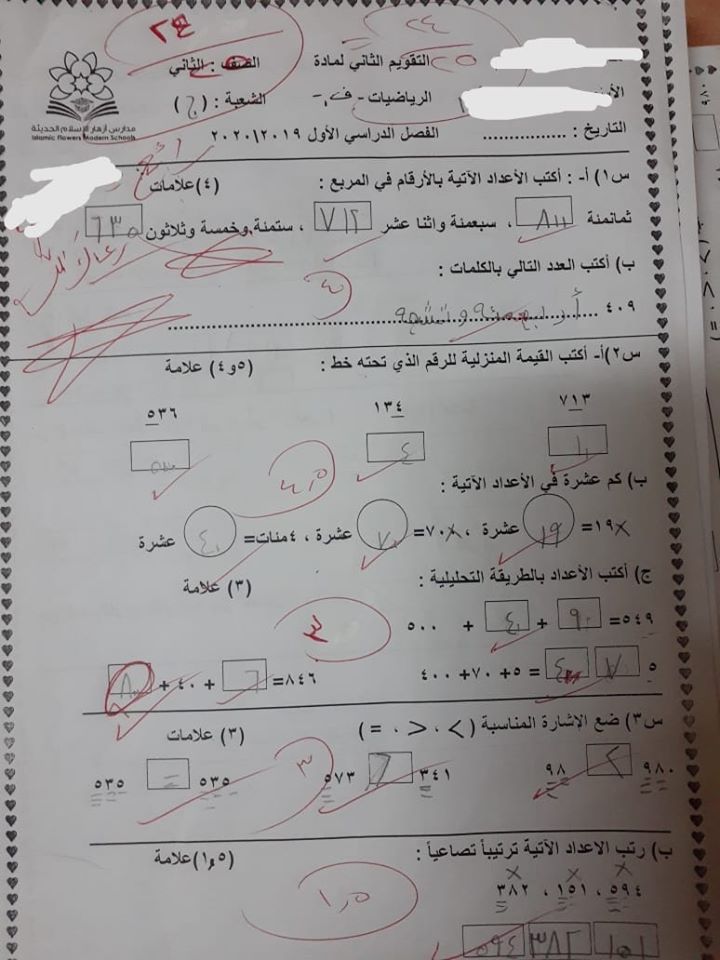 ٢٤
٢٤
٢٥
التقويم الثاني لمادة
الصف : الثاني
الرياضيات - ف١-
الشعبة : (ج)
مدارس أزهار الإسلام الحديثة
Islamic flowers Modern Schools
التاريخ : ................
الفصل الدراسي الأول ٢٠١٩/٢٠٢٠
س١) أ- : أكتب الأعداد الآتية بالأرقام في المربع : (٤)علامات
ثمانمئة ، سبعمئة واثنا عشر ٧١٢ ، ستمئة وخمسة وثلاثون ٦٣٥
ب) أكتب العدد التالي بالكلمات :
٤
٤٠٩ أربعمئة وتسعة
س٢)أ- أكتب القيمة المنزلية للرقم الذي تحته خط : (٤و٥) علامة
٧١٣ ١٣٤ ٥٣٦
١٠ ٤
٤,٥
ب) كم عشرة في الأعداد الآتية :
١٩٠= ١٩ عشرة ، ٧٠٠= ٧٠ عشرة ، ٤مئات= ٤٠ عشرة
ج) أكتب الأعداد بالطريقة التحليلية : (٣) علامة
٣
٥٤٩= ٩ + ٤٠ + ٥٠٠
٥ ٧ ٤ = ٥+ ٧٠+ ٤٠٠
٨٤٦= ٦ + ٤٠ + ٨٠٠
س٣) ضع الإشارة المناسبة ( > ، < ، = ) (٣) علامات
٣
٩٨٠ > ٩٨ ٣٤١ < ٥٧٣ ٥٣٥ = ٥٣٥
ب) رتب الاعداد الآتية ترتيباً تصاعياً : (١,٥)علامة
٥٩٤ ، ١٥١ ، ٣٨٢
١,٥
١٥١ ٣٨٢ ٥٩٤